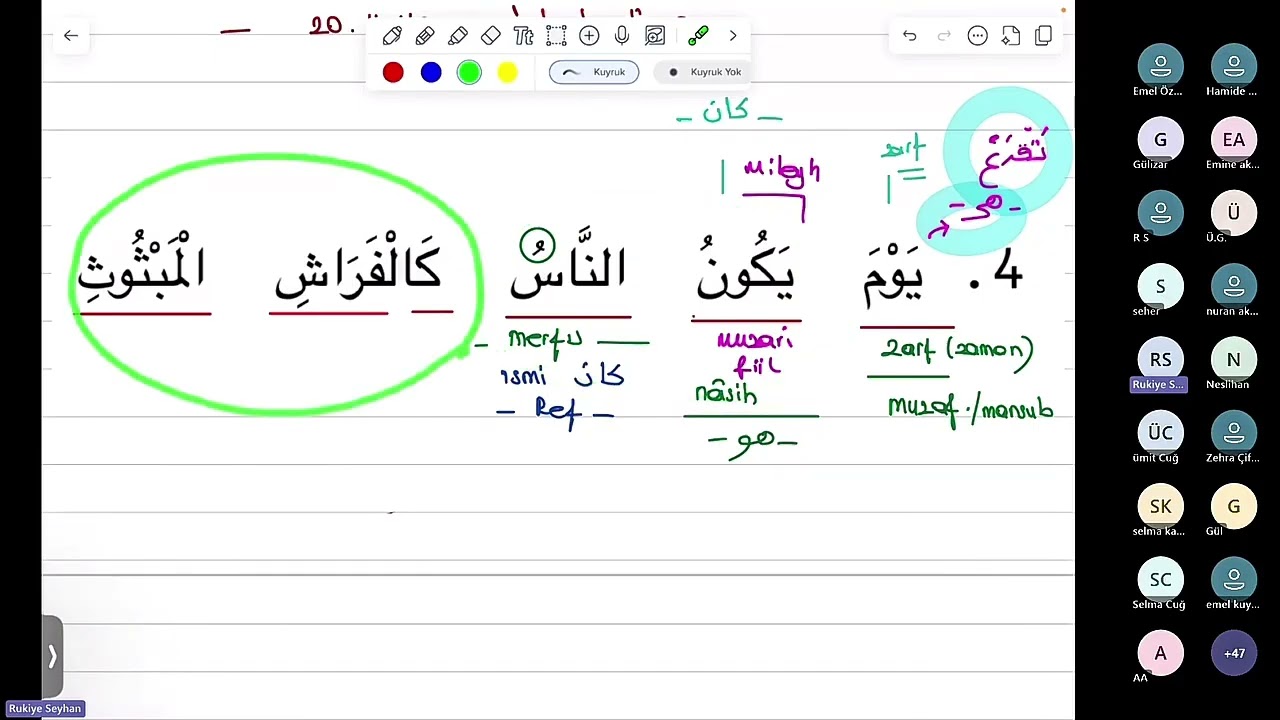 20.
Kuyruk
Kuyruk Yok
- كان -
zarf
تقرع
muileyh
- هي -
4. يَوْمَ يَكُونُ النَّاسُ كَالْفَرَاشِ الْمَبْثُوثِ
zarf (zaman)
muzari
- merfu
fiil
ismi كان
nâsih
muzaf./mansub
- Ref -
- هو -
Emel Öz...
Hamide ...
G
Gülizar
EA
Emine ak...
R S
Ü
Ü.G.
S
seher
nuran ak...
RS
Rukiye S...
N
Neslihan
ÜC
ümit Cuğ
Zehra Çif...
SK
selma ka...
G
Gül
SC
Selma Cuğ
emel kuy...
A
AA
+47
Rukiye Seyhan